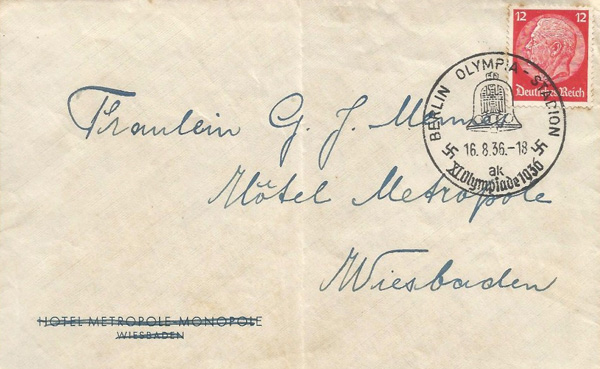 12 12
Deutsches Reich
BERLIN OLYMPIA-STADION
16.8.36.-18
ak
XI.Olympiade 1936
Fräulein G. J.
Hôtel Metropole
Wiesbaden
HOTEL METROPOLE-MONOPOLE
WIESBADEN